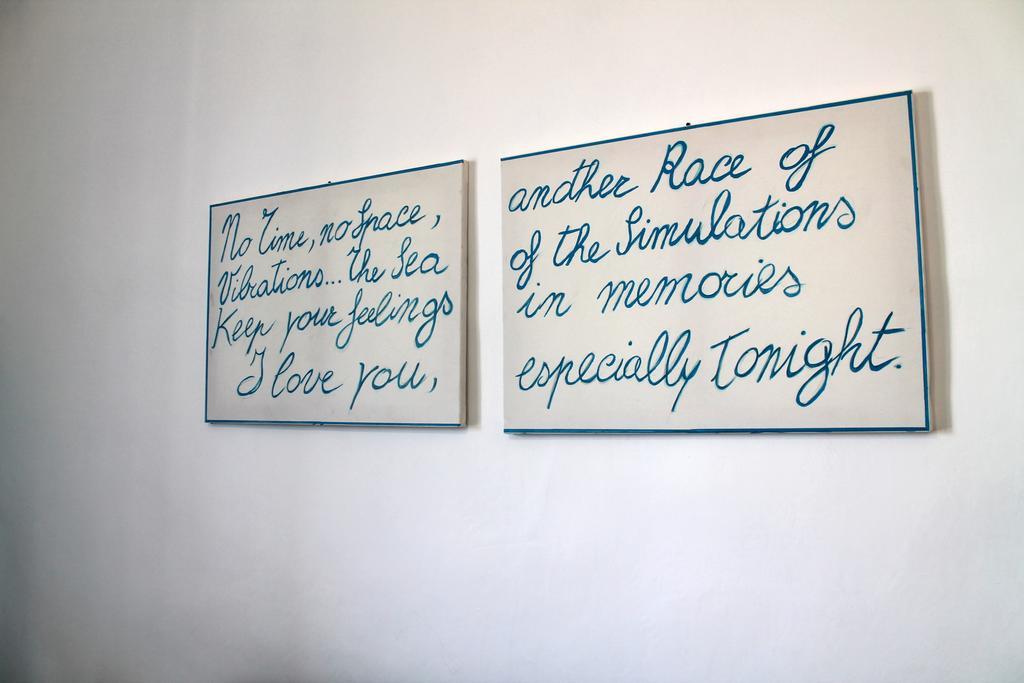 No Time, no Space,
Vibrations... The Sea
Keep your feelings
I love you,
another Race of
of the Simulations
in memories
especially Tonight.